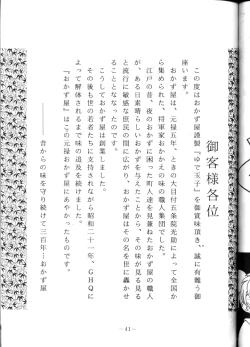 御客様各位
この度はおかず屋謹製『ゆで玉子』を御賞味頂き、誠に有難う御
座います。
おかず屋は、元禄五年、ときの大目付五条院光助によって全国か
ら集められた、将軍家おかかえの味の職人集団でした。
江戸の昔、夜のおかずに困った町人達を見兼ねたおかず屋の職人
が、ある日素晴らしいおかずを与えたことから、その味が見る見る
と流行に敏感な庶民の間に広がり、おかず屋はその名を世に轟かせ
ることとなったのです。
こうしておかず屋は創業しました。
その後も世の若者たちに支持されながら昭和二十一年、GHQに
よって解体されるまで味の追及を続けました。
『おかず屋』はこの元禄おかず屋にあやかったものです。
――昔からの味を守り続けて三百年…おかず屋
— 41 —